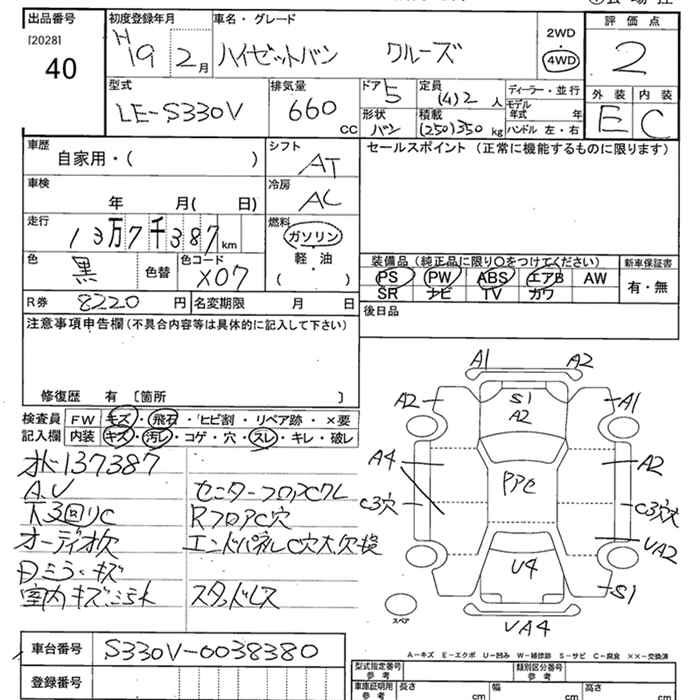 出品番号
[2028]
40
初度登録年月
H19 2月
車名・グレード
ハイゼットバン クルーズ
2WD
4WD
評価点
2
型式
LE-S330V
排気量
660 CC
ドア 5
形状 バン
定員 (4)2 人
積載 (250)350 kg
ディーラー・並行
モデル年式 年
ハンドル 左・右
外装 内装
E C
車歴
自家用・( )
シフト
AT
セールスポイント (正常に機能するものに限ります)
車検
年 月( 日)
冷房
AC
走行
13万7千387km
燃料
ガソリン
軽・油
( )
色
黒 色替
色コード
X07
装備品(純正品に限り○をつけてください)
PS PW ABS エアB AW
SR ナビ TV カワ
新車保証書
有・無
R券 8220 円 名変期限 月 日
後日品
注意事項申告欄(不具合内容等は具体的に記入して下さい)
修復歴 有 〔箇所 〕
検査員記入欄
FW キズ・飛石・ヒビ割・リペア跡・×要
内装 キズ・汚レ・コゲ・穴・スレ・キレ・破レ
オド137387
A.V センターフロアCクレ
下3回りC RフロアC穴
オーディオ欠 エンドパネルC穴大.欠損
Dミラーキズ
室内キズ.ヨゴレ スタッドレス
車台番号 S330V-0038380
登録番号
A1 A2
A2 S1 A1
A2
A4 PPC A2
C3穴 C3穴大
VA2
U4 S1
スペア
VA4
A-キズ E-エクボ U-凹み W-補修跡 S-サビ C-腐食 ××-交換済
型式指定番号 参考 類別区分番号 参考
車庫証明用 参考 長さ cm 幅 cm 高さ cm